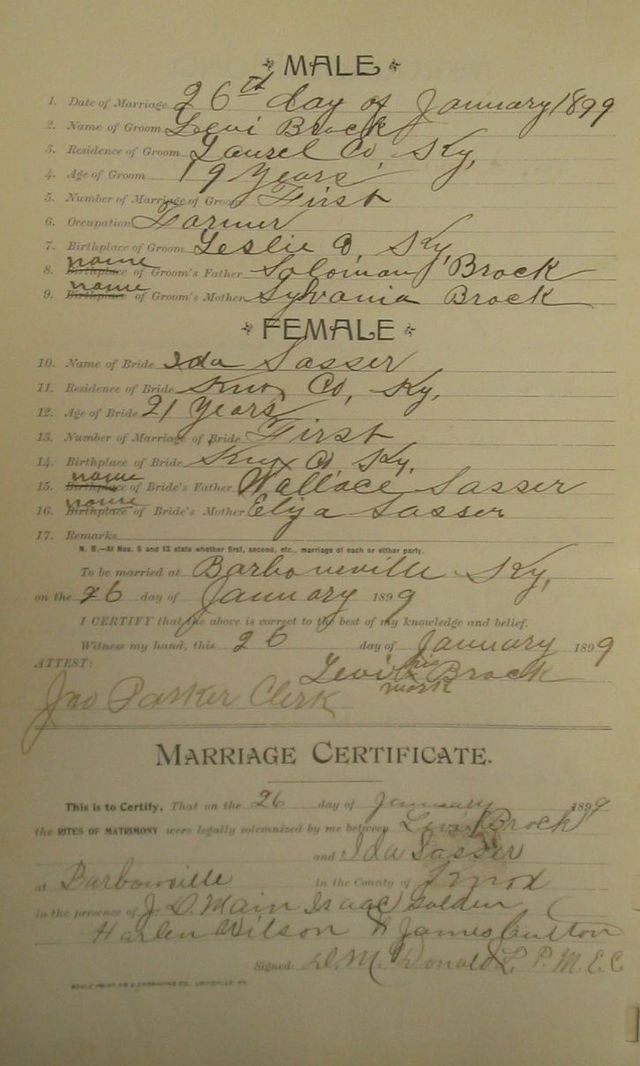 MALE
1. Date of Marriage 26th day of January 1899
2. Name of Groom Levi Brock
3. Residence of Groom Laurel Co, Ky,
4. Age of Groom 19 Years
5. Number of Marriage of Groom First
6. Occupation Farmer
7. Birthplace of Groom Leslie Co, Ky,
name
8. Birthplace of Groom's Father Soloman Brock
name
9. Birthplace of Groom's Mother Sylvania Brock
FEMALE
10. Name of Bride Ida Sasser
11. Residence of Bride Knox Co, Ky,
12. Age of Bride 21 Years
13. Number of Marriage of Bride First
14. Birthplace of Bride Knox Co Ky.
name
15. Birthplace of Bride's Father Wallace Sasser
name
16. Birthplace of Bride's Mother Eliza Sasser
17. Remarks
N. B.—At Nos. 5 and 13 state whether first, second, etc., marriage of each or either party.
To be married at Barboneville Ky,
on the 26 day of January 1899
I CERTIFY that the above is correct to the best of my knowledge and belief.
Witness my hand, this 26 day of January 1899
ATTEST: Levi his x mark Brock
Jno Parker Clerk
MARRIAGE CERTIFICATE.
This is to Certify, That on the 26 day of January 1899
the RITES OF MATRIMONY were legally solemnized by me between Levi Brock
and Ida Sasser
at Barbourville in the County of Knox
in the presence of J. D. Main Isaac Golden
Harlen Wilson & James
Signed D. McDonald L. P. M. E. C